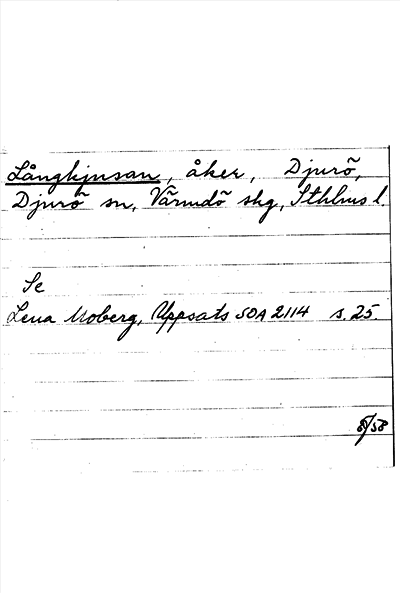 Långkjusan, åker, Djurö,
Djurö sn, Värmdö skg, Sthlms l.
Se
Lena Moberg, Uppsats SOA 2114 s. 25.
8/58